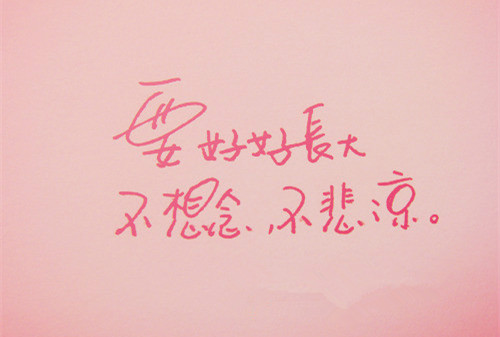 要好好長大
不想念、不悲涼。